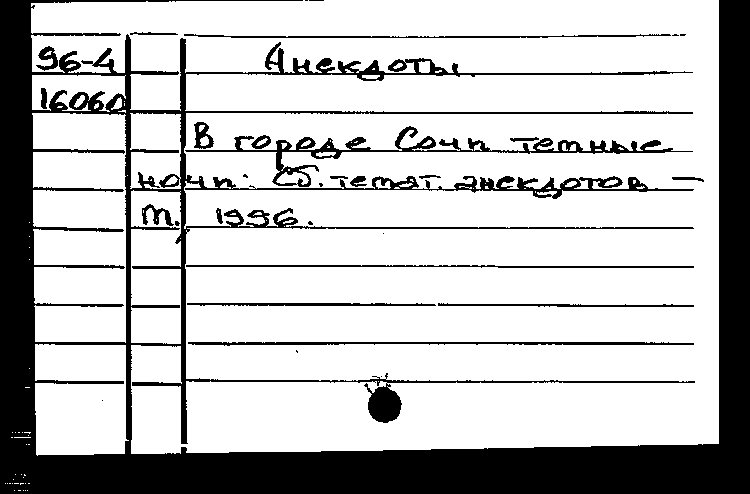 96-4 Анекдоты.
16060
В городе Сочи темные
ночи: Сб. темат. анекдотов. —
М., 1996.